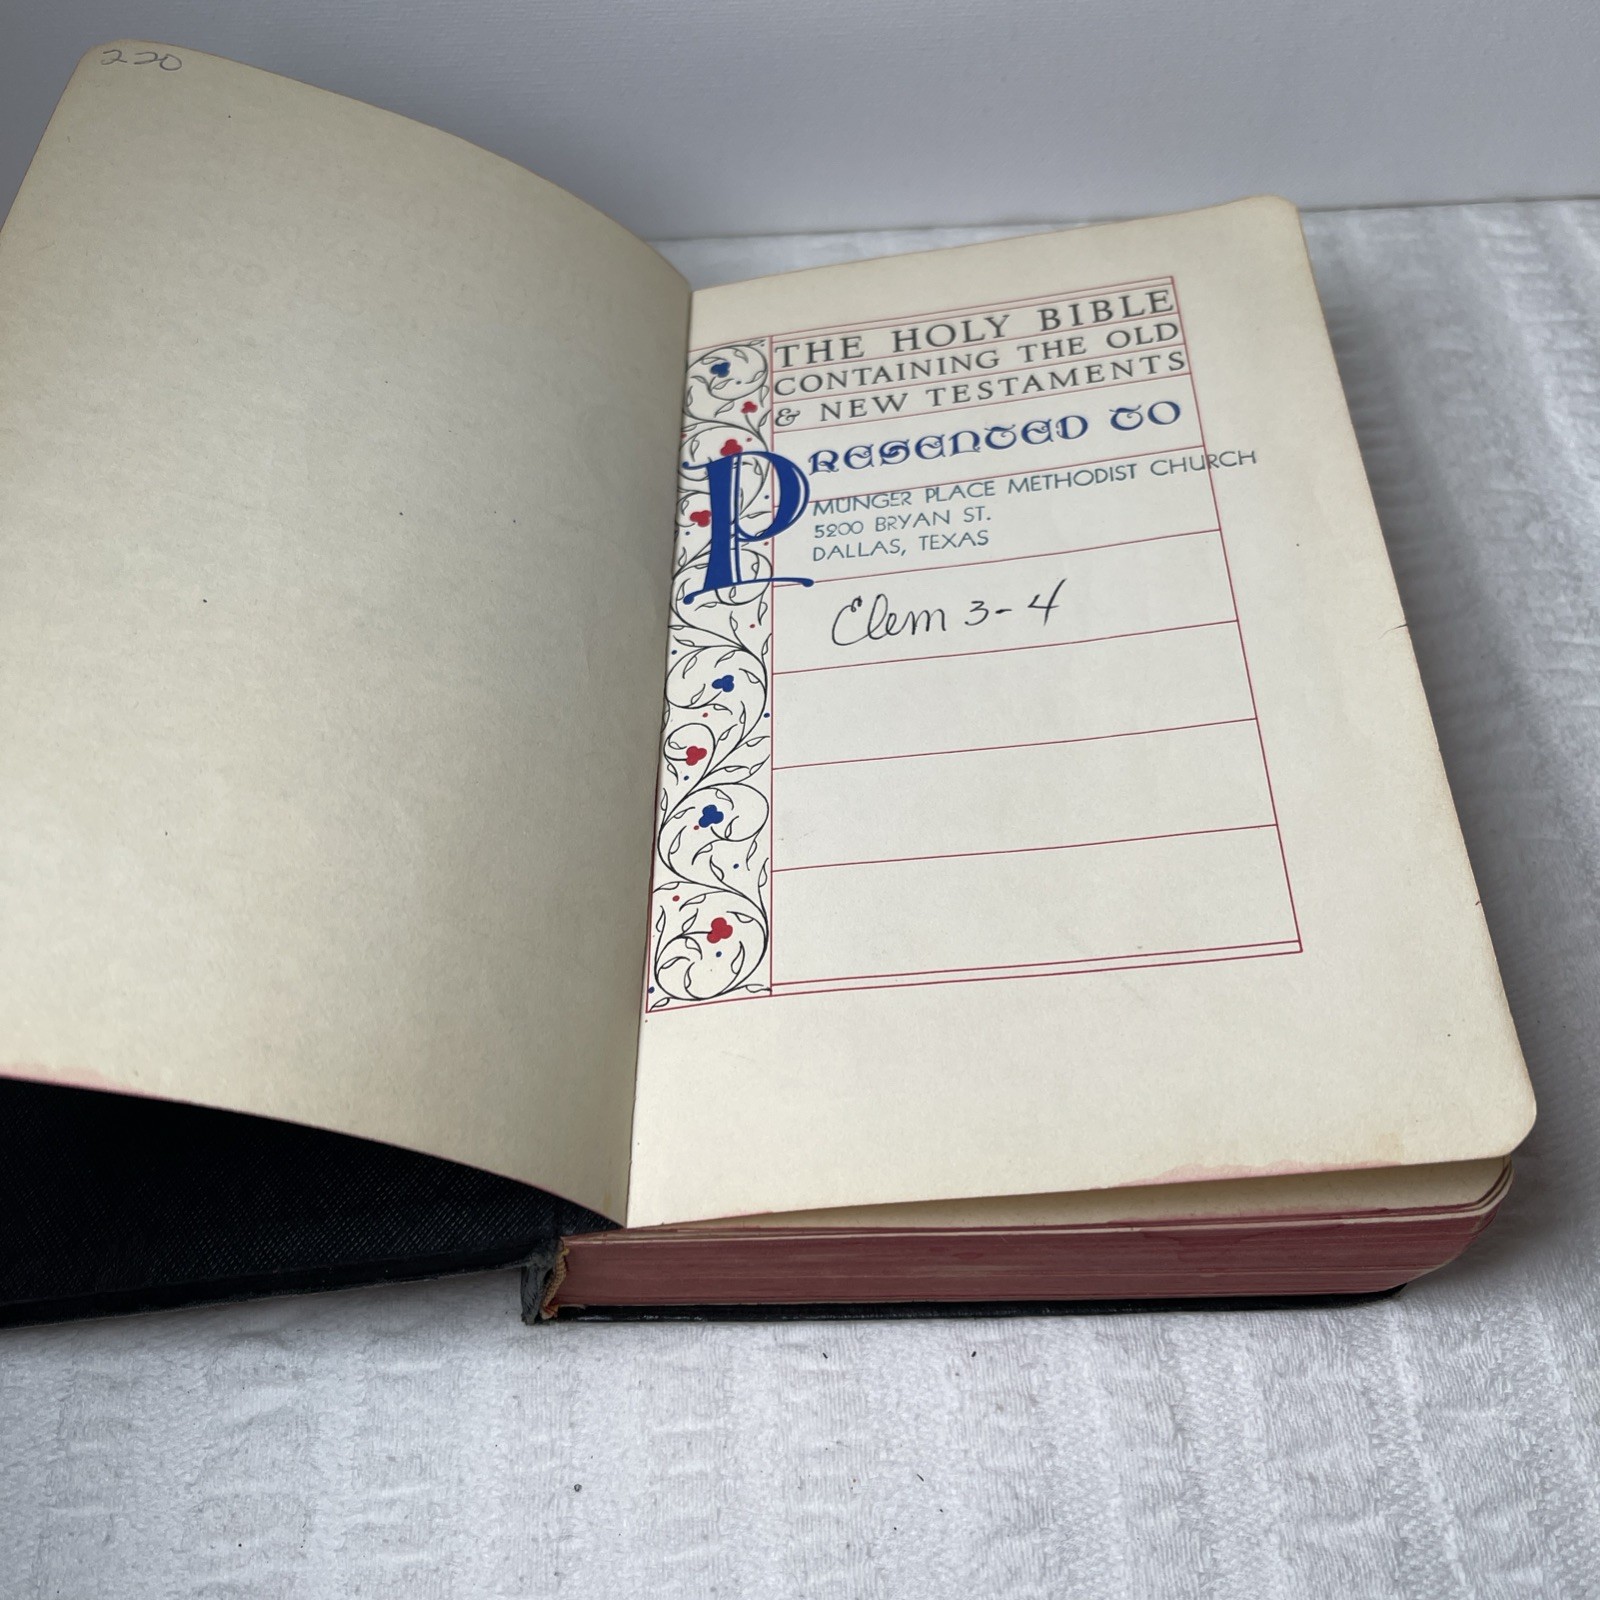 220
THE HOLY BIBLE
CONTAINING THE OLD
& NEW TESTAMENTS
PRESENTED TO
MUNGER PLACE METHODIST CHURCH
5200 BRYAN ST.
DALLAS, TEXAS
Elem 3-4